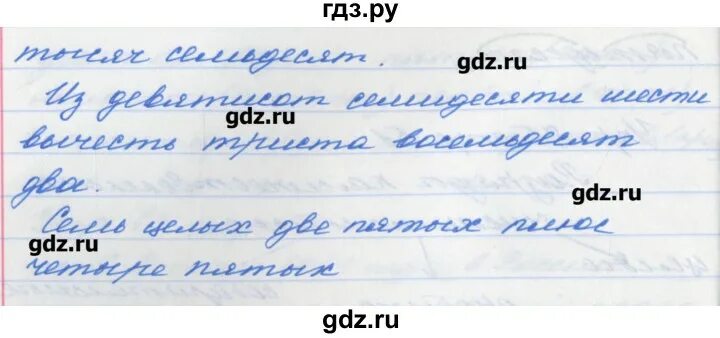 гдз.ру
тысяч семьдесят.
gdz.ru
Из девятисот семидесяти шести
gdz.ru
вычесть триста восемьдесят
два.
gdz.ru
Семь целых две пятых плюс
gdz.ru
четыре пятых
gdz.ru
gdz.ru